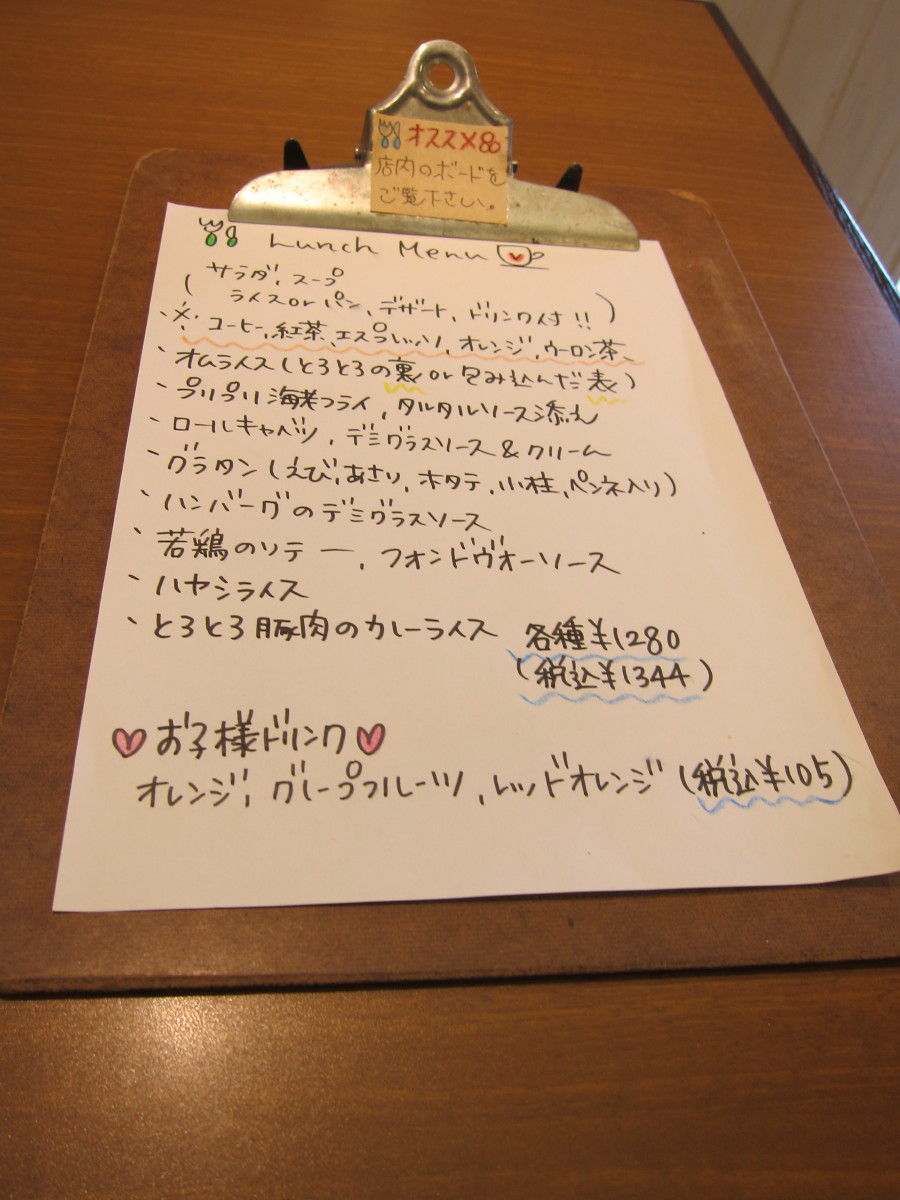 オススメ品
店内のボードを
ご覧下さい。
Lunch Menu
(サラダ、スープ
ライスorパン、デザート、ドリンク付!!)
※コーヒー、紅茶、エスプレッソ、オレンジ、ウーロン茶、
・オムライス(とろとろの裏or包み込んだ表)
・プリプリ海老フライ、タルタルソース添え
・ロールキャベツ、デミグラスソース&クリーム
・グラタン(えび、あさり、ホタテ、小柱、ペンネ入り)
・ハンバーグのデミグラスソース
・若鶏のソテー、フォンドヴォーソース
・ハヤシライス
・とろとろ豚肉のカレーライス 各種¥1280
(税込¥1344)
♥お子様ドリンク♥
オレンジ、グレープフルーツ、レッドオレンジ(税込¥105)